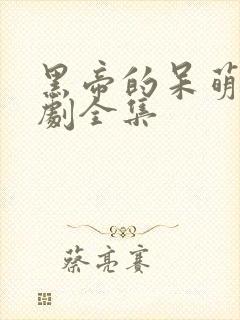 黑帝的呆萌
劇全集
蔡亮赛